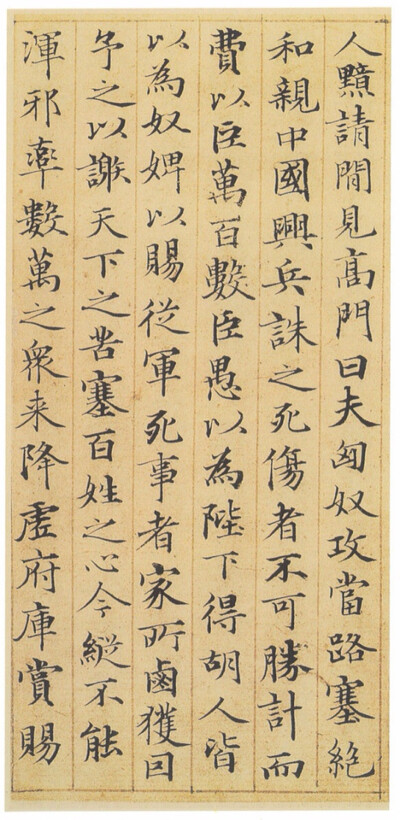 人黯請閒見高門曰夫匈奴攻當路塞絶
和親中國興兵誅之死傷者不可勝計而
費以臣萬百數臣愚以為陛下得胡人皆
以為奴婢以賜從軍死事者家所鹵獲因
予之以謝天下之苦塞百姓之心今縱不能
渾邪率數萬之衆来降虚府庫賞賜